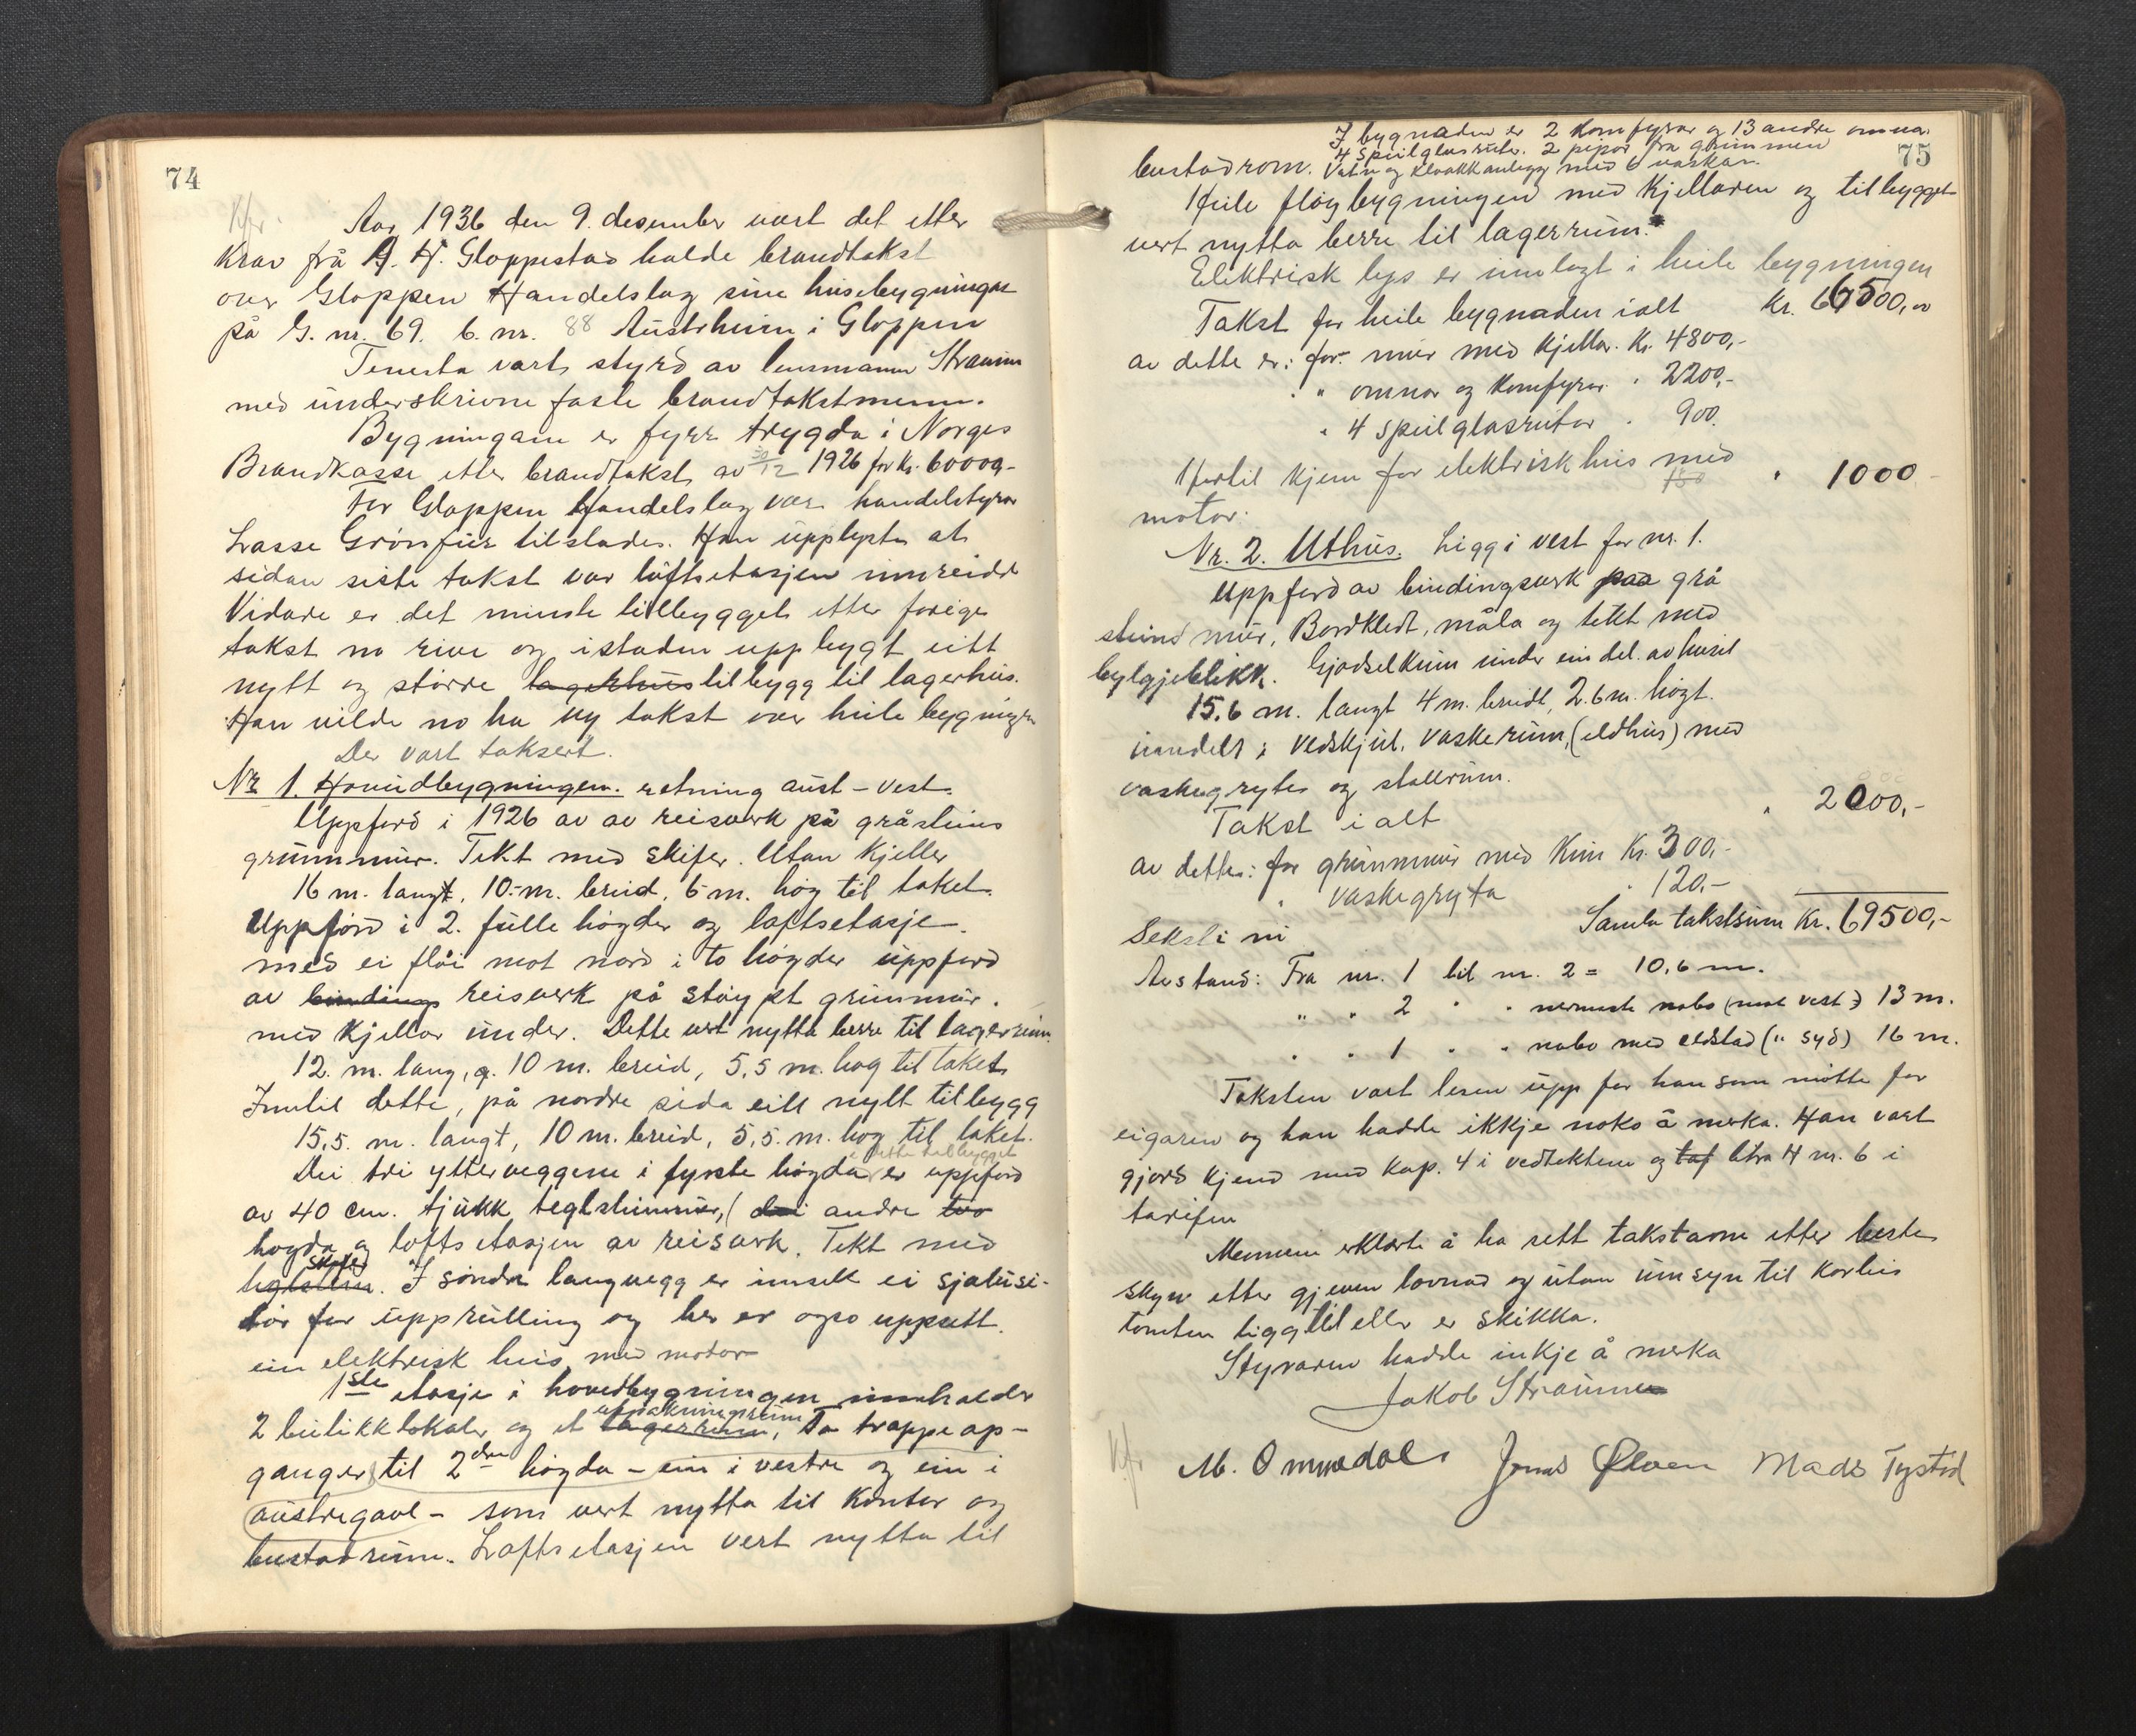 74
Kfr.
Aar 1936 den 9. desember vart det etter
krav frå A. H. Gloppestad halde brandtakst
over Gloppen Handelslag sine husebygningar
på G. nr. 69. b. nr. 88 Austrheim i Gloppen
Tenesta vart styrd av lensmann Straume
med underskrivne faste brandtakstmenn.
Bygningane er fyrr trygda i Norges
Brandkasse etter brandtakst av 30/12 1926 for Kr. 60000,-
For Gloppen Handelslag var handelstyrar
Lasse Grønfur tilstades. Han upplyste at
sidan siste takst var loftsetasjen innreidd
Vidare er det minste tilbygget etter forige
takst no rive og istaden uppbygt eitt
nytt og større lagerhus tilbygg til lagerhus.
Han vilde no ha ny takst over heile bygningen
Der vart taksert.
Nr 1. Hovudbygningen. retning aust - vest.
Uppførd i 1926 av av reisverk på gråsteins
grunnmur. Tekt med skifer. Utan kjeller
16 m. langt, 10.- m. breid, 6 m. høg til taket.
Uppførd i 2. fulle høgder og loftsetasje.
med ei fløi mot nord i to høgder uppførd
av bindings reisverk på støypt grunnmur.
med kjellar under. Dette vert nytta berre til lagerrum.
12. m. lang, 10 m. breid, 5,5 m. høg til taket
Inntil dette, på nordre sida eitt nytt tilbygg
15,5. m. langt, 10 m. breid, 5,5. m. høg til taket.
i dette tilbygget
Dei tri ytterveggene i fyrste høgda er uppførd
av 40 cm. tjukk teglsteinsmur, dei andre two
høgda og loftsetasjen av reisverk. Tekt med
skifer
teglstein. I søndre langvegg er innsett ei sjalusi-
dør for upprulling og her er ogso uppsett
ein elektrisk heis med motor
1ste etasje i hovedbygningen innhalder
utpakningsrum
2 butikklokaler og et lagerrum, To trappeop-
ganger til 2dre høgda - ein i vestre og ein i
austre gavl - som vert nytta til kontor og
bustadrum. Loftsetasjen vert nytta til
75
I bygnaden er 2 komfyrar og 13 andre omnar.
4 speilglasruter. 2 pipor fra grunnen
bustadrom. Vatn og kloakkanlegg med 6 vaskar.
Heile fløybygningen med kjellaren og tilbygget
vert nytta berre til lagerrum.
Elektrisk lys er innlagt i heile bygningen
Takst for heile bygnaden ialt Kr. 66500,00
av dette er: for mur med kjellar. Kr. 4800,-
" " omnar og komfyrar " 2200,-
" 4 speilglasrutor " 900.
Hertil kjem for elektrisk heis med
150
motor. " 1000 -
Nr. 2. Uthus. Ligg i vest for nr. 1.
Uppførd av bindingsverk paa grå
steins mur, Bordkledt, måla og tekt med
bylgjeblikk. Gjødselkum under ein del av huset
15,6 m. langt 4 m. breidt, 2.6 m. høgt.
inndelt i vedskjul, vaskerum, (eldhus) med
vaskegryte og stallrum.
Takst i alt " 2000,-
av dette: for grunnmur med kum Kr. 300,-
" vaskegryta " 120,-
Samla takstsum Kr. 69500,-
Seksti ni
Avstand: Fra nr. 1 til nr. 2 = 10,6 m.
" " 2 " " nermeste nabo (mot vest) 13 m.
" " 1 " " nabo med eldstad (" syd) 16 m.
Taksten vart lesen upp for han som møtte for
eigaren og han hadde ikkje noko å merka. Han vart
gjord kjend med kap. 4 i vedtektene og taf litra H nr. 6 i
tarifen
Mennene erklærte å ha sett takstane etter beste
skyn etter gjeven lovnad og utan umsyn til korleis
tomten ligg til eller er skikka.
Styraren hadde inkje å merka
Jakob Straume
Kfr
M. Ommedal Jonas Øloen Mads Tystad